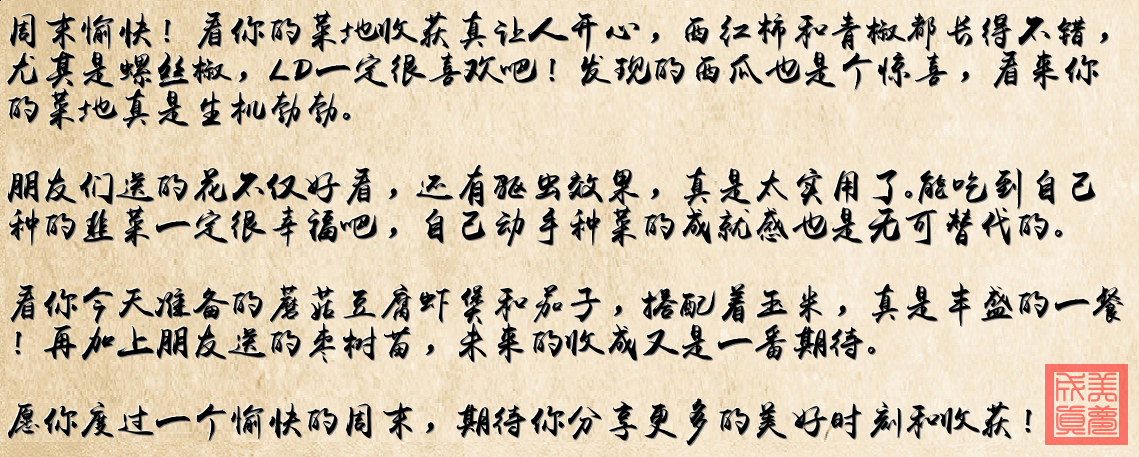 周末愉快！看你的菜地收获真让人开心，西红柿和青椒都长得不错，
尤其是螺丝椒，LD一定很喜欢吧！发现的西瓜也是个惊喜，看来你
的菜地真是生机勃勃。
朋友们送的花不仅好看，还有驱虫效果，真是太实用了。能吃到自己
种的韭菜一定很幸福吧，自己动手种菜的成就感也是无可替代的。
看你今天准备的蘑菇豆腐虾煲和茄子，搭配着玉米，真是丰盛的一餐
！再加上朋友送的枣树苗，未来的收成又是一番期待。
愿你度过一个愉快的周末，期待你分享更多的美好时刻和收获！
美梦成真